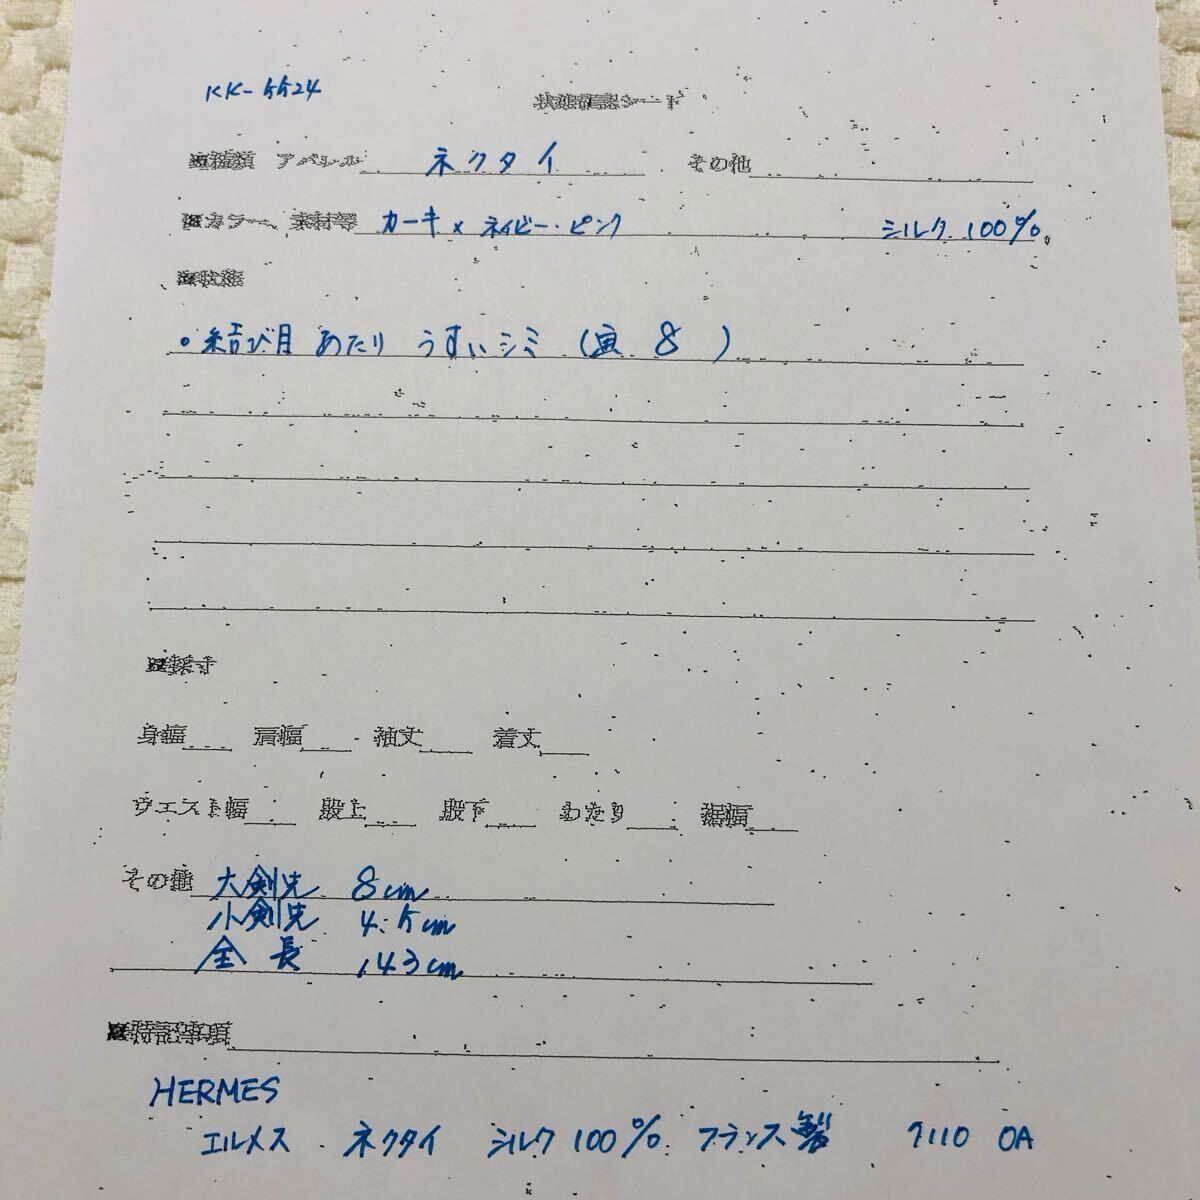 KK-5524
状態確認シート
■種類 アパレル ネクタイ その他
■カラー、素材等 カーキ×ネイビー・ピンク シルク100%
■状態
○結び目あたり うすいシミ ( 8 )
■採寸
身幅 肩幅 袖丈 着丈
ウエスト幅 股上 股下 わたり 裾幅
その他 大剣先 8cm
小剣先 4.5cm
全長 143cm
■特記事項
HERMES
エルメス ネクタイ シルク100% フランス製 7110 OA